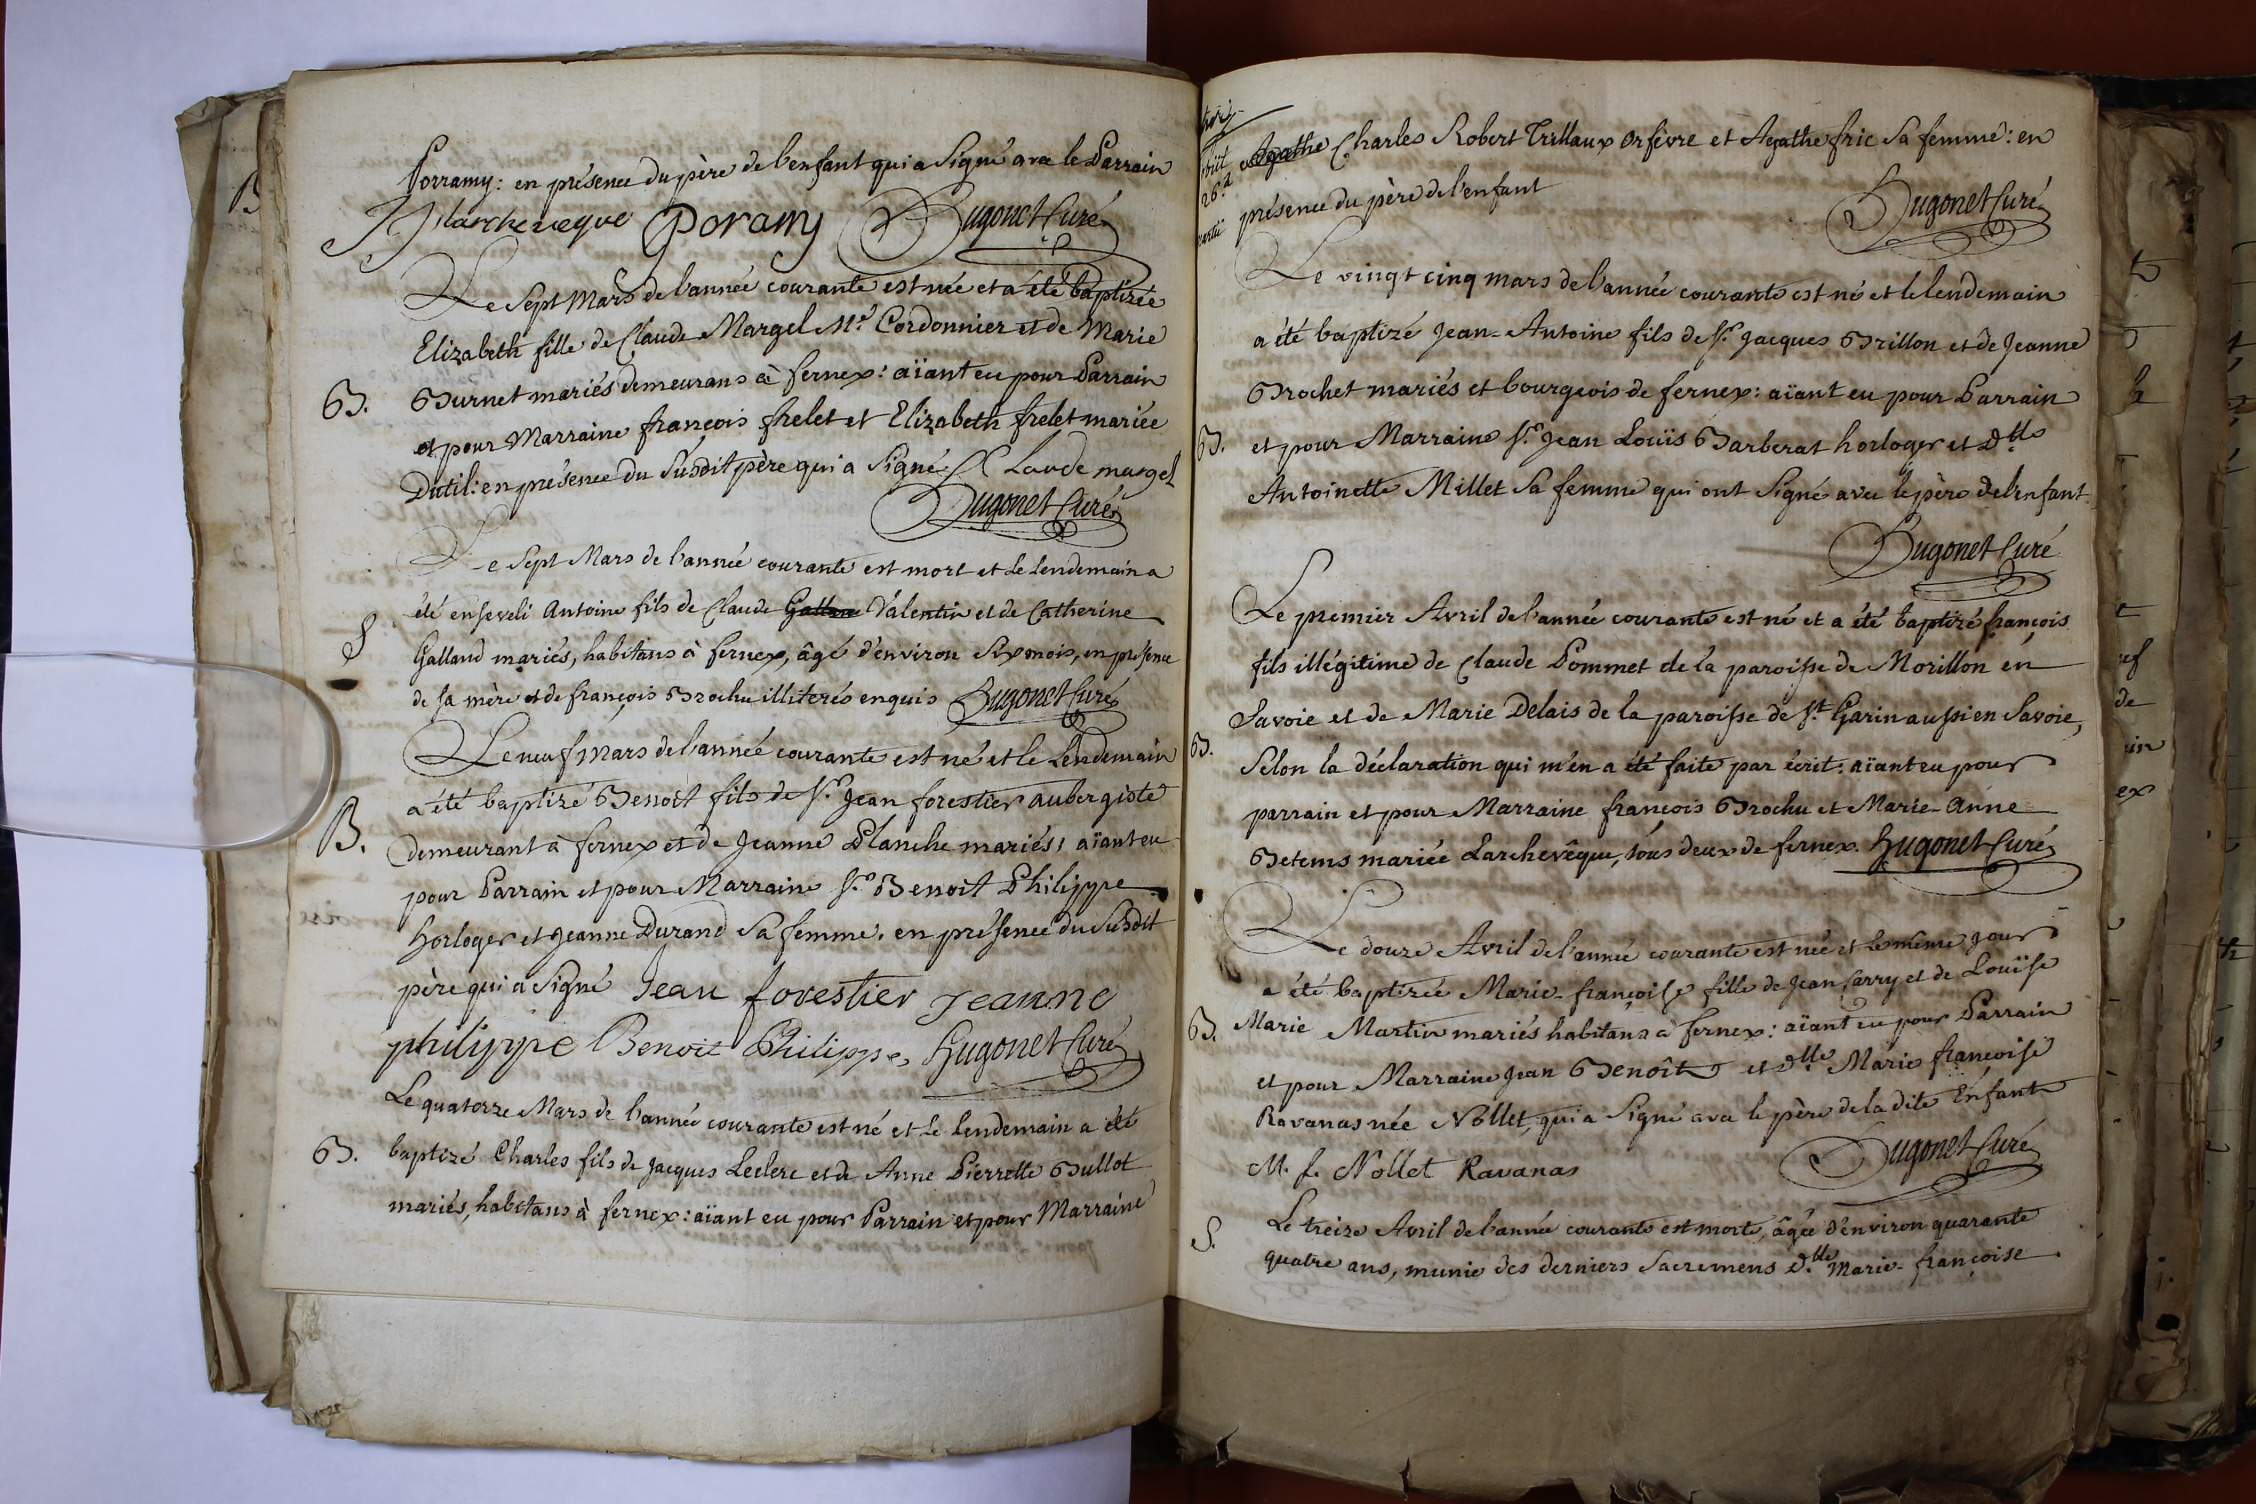 Porramy: en présence du père de l'enfant qui a Signé avec le Parrain
Larcheveque Poramy Hugonet Curé
Le Sept Mars de l'année courante est née et a été baptizée
Elizabeth fille de Claude Margel M.e Cordonnier et de Marie
B. Burnet mariés demeurans à fernex: aïant eu pour Parrain
et pour Marraine françois frelet et Elizabeth frelet mariée
Dutil: en présence du Susdit père qui a Signé. Claude margel
Hugonet Curé
Le Sept Mars de l'année courante est mort et le lendemain a
été enseveli Antoine fils de Claude Valentin et de Catherine
S Galland mariés, habitans à fernex, âgé d'environ Six mois, en présence
de sa mère et de françois Brochu illiterés enquis Hugonet Curé
Le neuf Mars de l'année courante est né et le Lendemain
a été baptizé Benoit fils de S.r Jean forestier aubergiste
B. demeurant à fernex et de Jeanne Planche mariés, aïant eu
pour Parrain et pour Marraine S.r Benoit Philippe
horloger et Jeanne Durand Sa femme, en présence du Susdit
père qui a Signé Jean forestier Jeanne
philippe Benoit Philippe, Hugonet Curé
Le quatorze Mars de l'année courante est né et le lendemain a été
B. baptizé Charles fils de Jacques Leclerc et de Anne Pierrette Bullot
mariés, habitans à fernex: aïant eu pour Parrain et pour Marraine
Agathe Charles Robert Trillaux Orfèvre et Agathe fric Sa femme: en
présence du père de l'enfant
Hugonet Curé
Le vingt cinq mars de l'année courante est né et le lendemain
a été baptizé Jean-Antoine fils de S.r Jacques Brillon et de Jeanne
Brochet mariés et bourgeois de fernex: aïant eu pour Parrain
B. et pour Marraine S.r Jean Louïs Barberat horloger et D.lle
Antoinette Millet Sa femme qui ont Signé avec le père de l'enfant.
Hugonet Curé
Le premier Avril de l'année courante est né et a été baptizé françois
fils illégitime de Claude Pommet de la paroisse de Morillon en
Savoie et de Marie Delais de la paroisse de S.t Garin aussi en Savoie,
B. Selon la déclaration qui m'en a été faite par écrit: aïant eu pour
parrain et pour Marraine françois Brochu et Marie-Anne
Betems mariée Larchevêque, tous deux de fernex. Hugonet Curé
Le douze Avril de l'année courante est née et le même jour
a été baptizée Marie-françoise fille de Jean Carry et de Louïse
B. Marie Martin mariés habitans à fernex: aïant eu pour Parrain
et pour Marraine Jean Benoît et D.lle Marie françoise
Ravanas née Nollet, qui a Signé avec le père de la dite Enfant
M. f. Nollet Ravanas Hugonet Curé
Le treize Avril de l'année courante est morte, âgée d'environ quarante
S. quatre ans, munie des derniers Sacremens D.lle Marie-françoise